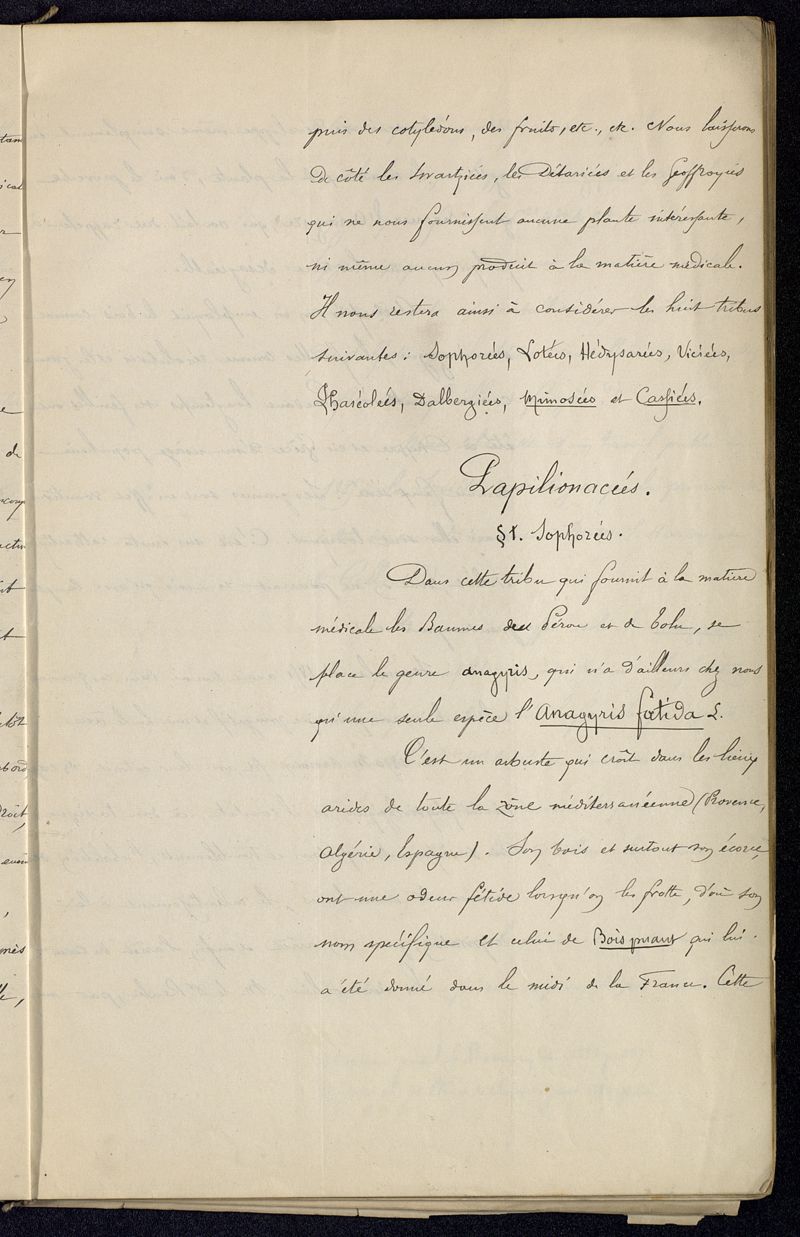 puis des cotylédons, des fruits, etc., etc. Nous laisserons
de côté les Swartziées, les Détariées et les Geoffroyées
qui ne nous fournissent aucune plante intéressante,
ni même aucun produit à la matière médicale.
Il nous restera ainsi à considérer les huit tribus
suivantes : Sophorées, Lotées, Hédysarées, Viciées,
Phaséolées, Dalbergiées, Mimosées et Cassiées.
Papilionacées.
§ 1. Sophorées.
Dans cette tribu qui fournit à la matière
médicale les Baumes du Pérou et de Tolu, se
place le genre anagyris, qui n'a d'ailleurs chez nous
qu'une seule espèce l'Anagyris fœtida L.
C'est un arbuste qui croît dans les lieux
arides de toute la zône méditerranéenne (Provence,
Algérie, Espagne). Son bois et surtout son écorce,
ont une odeur fétide lorsqu'on les frotte, d'où son
nom spécifique et celui de Bois puant qui lui
a été donné dans le midi de la France. Cette